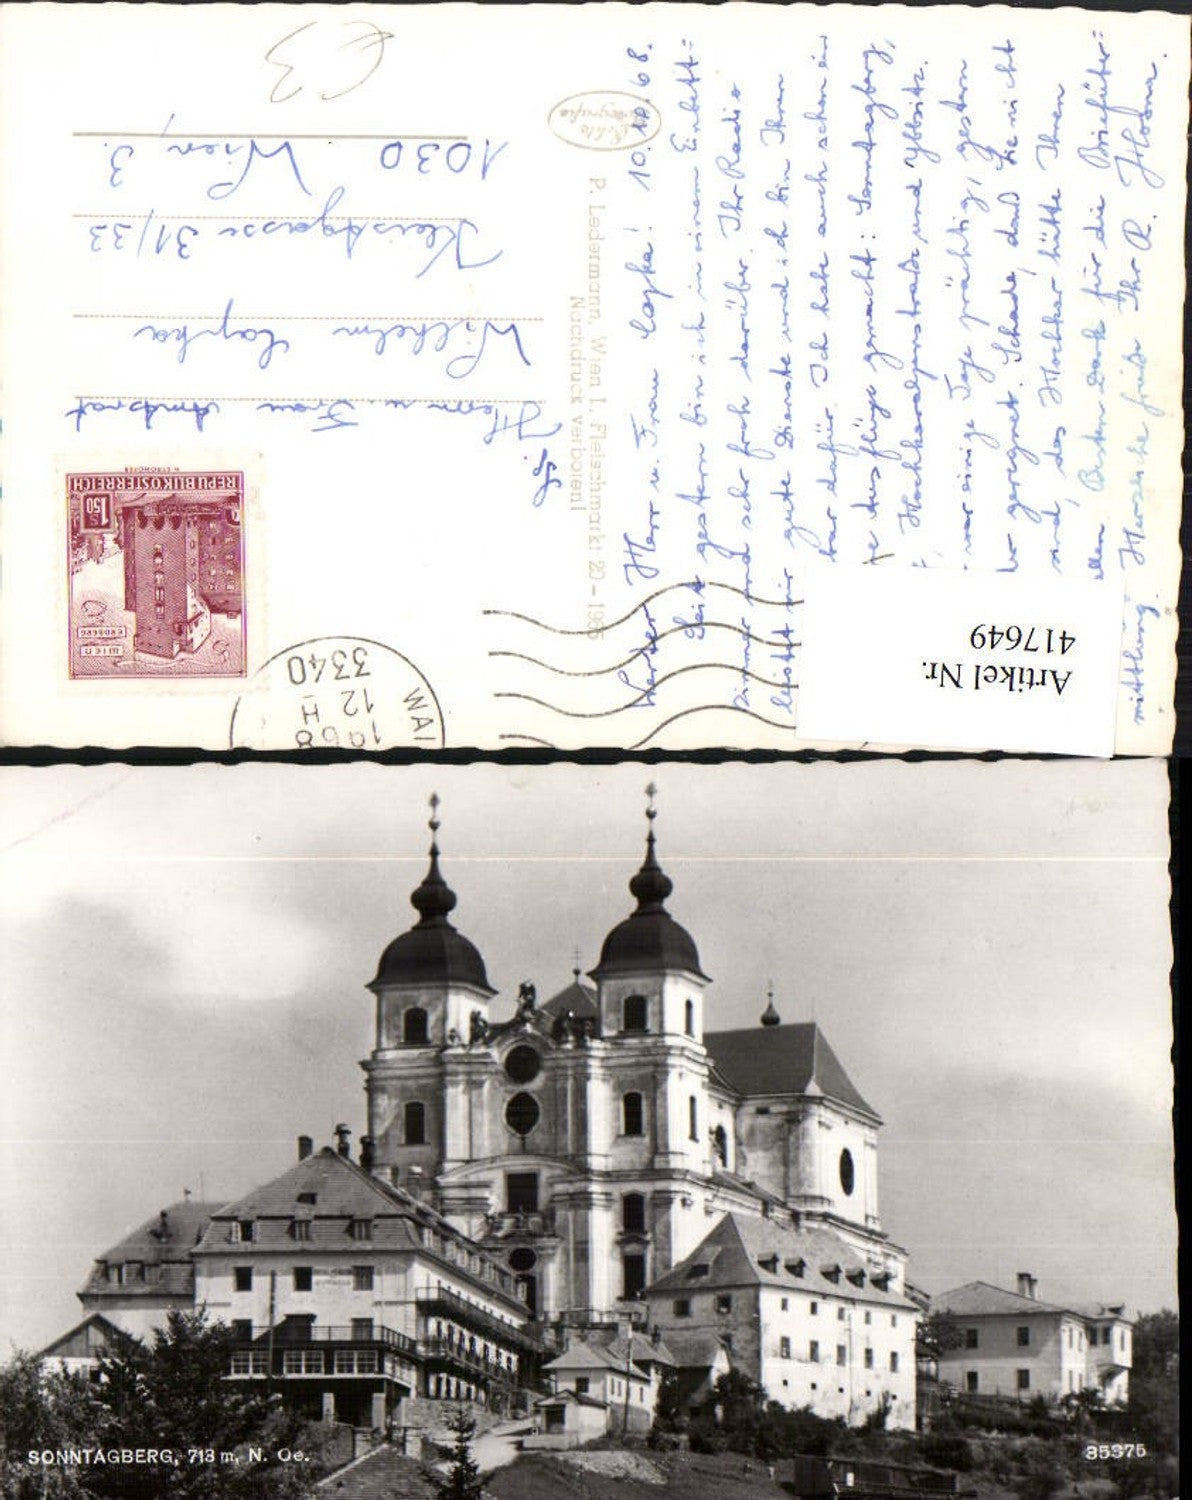 €3
Echte Fotografie
P. Ledermann, Wien I, Fleischmarkt 20 - 1965
Nachdruck verboten!
S. g.
Herrn u. Frau Amtsrat
Wilhelm Czapka
Kleistgasse 31/33
1030 Wien, 3.
REPUBLIK ÖSTERREICH
S 1.50
WIEN
ERDBERG
H. STROHOFER
WAI
3340
12 H
1968
Werter Herr u. Frau Czapka! 10.10.68.
Seit gestern bin ich in einem Einbett=
zimmer und sehr froh darüber. Ihr Radio
leistet mir gute Dienste und ich bin Ihnen
bar dafür. Ich habe auch schon ein
Ausflüge gemacht: Sonntagberg,
Hochkaralpenstraße und Ybbsitz.
war einige Tage prächtig, gestern
geregnet. Schade, daß Sie nicht
sind, das Hochkar hätte Ihnen
allen. Besten Dank für die Briefüber=
mittlung. Herzliche Grüße Ihr R.
Artikel Nr.
417649
SONNTAGBERG, 713 m, N. Oe.
35375